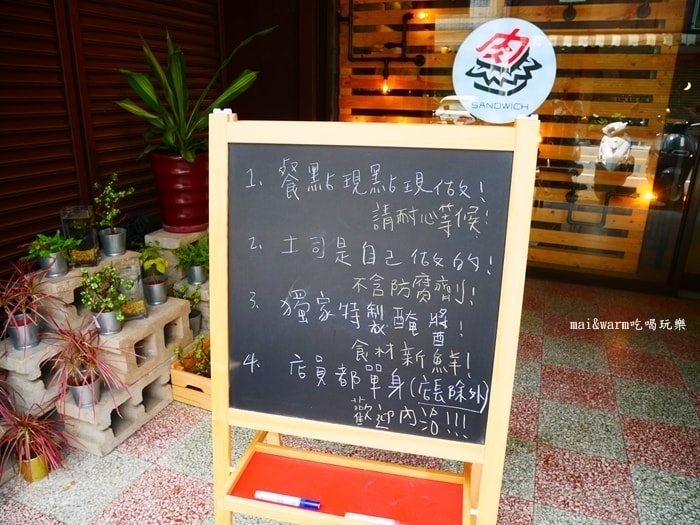 肉
SANDWICH
1. 餐點現點現做!
請耐心等候!
2. 土司是自己做的!
不含防腐劑!
3. 獨家特製醃醬!
食材新鮮!
4. 店員都單身(店長除外)
歡迎內洽!!!
mai&warm吃喝玩樂